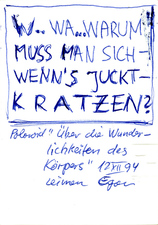 W.. WA..WARUM
MUSS MAN SICH
WENN'S JUCKT-
KRATZEN?
Polaroid "Über die Wunder-
lichkeiten des
Körpers" 12 XII 94
Egon